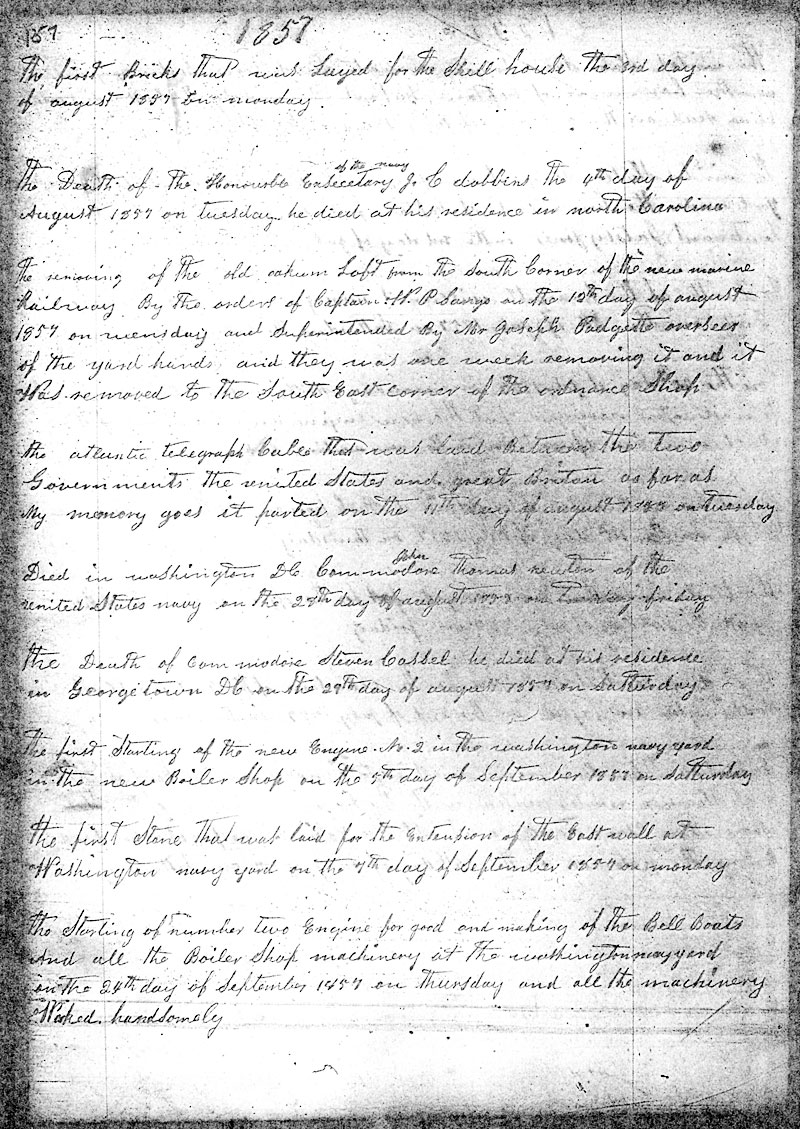 157 1857
The first Bricks that was Layed for the Shell house the 3rd day
of august 1857 on monday
of the navy
the Death of the Honourble Exsecetary J. C dobbins the 4th day of
August 1857 on tuesday he died at his residence in north Carolina
The removing of the old oakum Loft from the South Corner of the new marine
Railway By the orders of Captain H. P Sango on the 12th day of august
1857 on wensday and Superintended By Mr Joseph Padgett overseer
of the yard hands and they was one week removing it and it
Was removed to the South East corner of the ordnance Shop
the atlantic telegraph Cable that was laid Between the two
Governments the united States and great Briton as far as
My memory goes it parted on the 11th day of august 1857 on tuesday
John
Died in washington DC Commodore Thomas newton of the
united States navy on the 28th day of august 1857 on friday
the Death of commodore Steven Cassel he died at his residence
in Georgetown DC on the 29th day of august 1857 on Satturday
The first Starting of the new Engine No. 2 in the washington navy yard
in the new Boiler Shop on the 5th day of September 1857 on Satturday
the first Stone that was laid for the Extension of the East wall at
Washington navy yard on the 7th day of September 1857 on monday
the Starting of number two Engine for good and making of the Bell Boats
And all the Boiler Shop machinery at the washington navy yard
on the 24th day of September 1857 on thursday and all the machinery
Worked handsomely